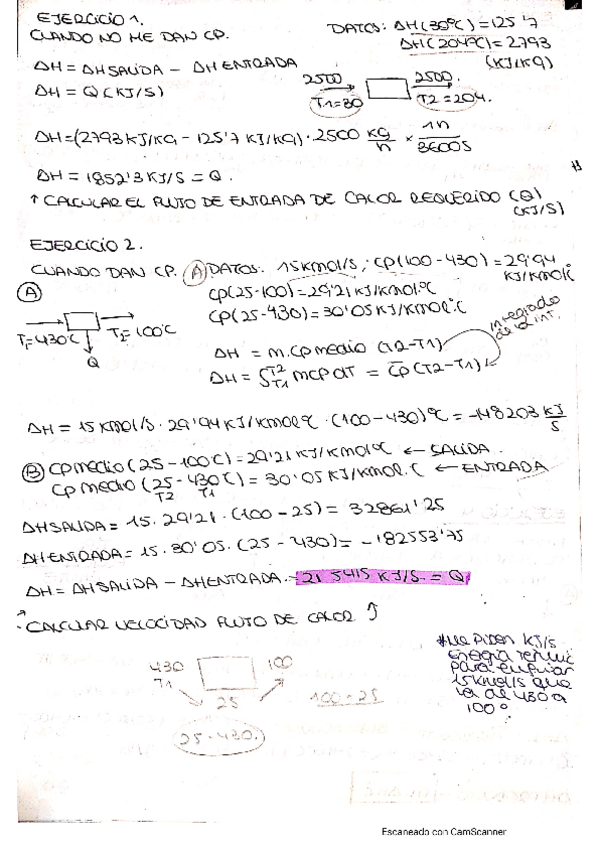 EJERCICIO 1.
CUANDO NO ME DAN CP.
DATOS: ΔH(30ºC)=125'7
ΔH(204ºC)=2793
(KJ/KG)
ΔH = ΔHSALIDA - ΔHENTRADA
ΔH = Q(KJ/S)
2500 2500.
T1=30 T2=204.
ΔH=(2793KJ/KG - 125'7 KJ/KG)·2500 KG/h × 1h/3600S
ΔH = 1852'3KJ/S = Q.
↑ CALCULAR EL FLUJO DE ENTRADA DE CALOR REQUERIDO (Q)
(KJ/S)
EJERCICIO 2.
CUANDO DAN CP. (A) DATOS: 15Kmol/S; CP(100-430)=29'94
KJ/KmolºC
(A)
CP(25-100)=29'21KJ/KMOLºC
CP(25-430)=30'05KJ/KMOLºC
T1=430ºC T2=100ºC
Q
ΔH = m.CPmedio (T2-T1)
ΔH = ∫T2 T1 mCPdT = CP(T2-T1)
integrado
de la int.
ΔH = 15Kmol/S · 29'94KJ/KMOLºC · (100-430)ºC = -148203 KJ/S
(B) CPmedio(25-100ºC)=29'21KJ/KMOLºC ← SALIDA.
CPmedio(25-430ºC)=30'05KJ/KMOL.C ← ENTRADA
T2 T1
ΔHSALIDA = 15·29'21·(100-25) = 32861'25
ΔHENTRADA = 15·30'05·(25-430) = -182553'75
ΔH = ΔHSALIDA - ΔHENTRADA = 215415 KJ/S. = Q
- CALCULAR VELOCIDAD FLUJO DE CALOR ↑
430 100
T1
25 100-25
25-430.
*Me piden KJ/S
energia
para enfriar
15Kmol/S que
va de 430 a
100º
Escaneado con CamScanner